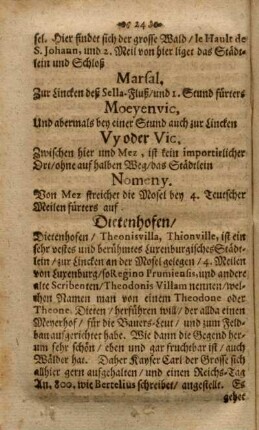 24
sel. Hier findet sich der grosse Wald / le Hault de
S. Johann, und 2. Meil von hier liget das Städt-
lein und Schloß
Marsal.
Zur Lincken deß Sella-Fluß / und 1. Stund fürters
Moeyenvic,
Und abermals bey einer Stund auch zur Lincken
Vy oder Vic.
Zwischen hier und Mez, ist kein importirlicher
Ort / ohne auf halben Weg / das Städtlein
Nomeny.
Von Mez streichet die Mosel bey 4. Teutscher
Meilen fürters auf
Dietenhofen /
Dietenhofen / Theonisvilla, Thionville, ist ein
sehr vestes und berühmtes Luxenburgisches Städt-
lein / zur Lincken an der Mosel gelegen / 4. Meilen
von Luxenburg / so Regino Prumiensis, und andere
alte Scribenten / Theodonis Villam nennen / wel-
chen Namen man von einem Theodone oder
Theone. Dieten / herführen will / der allda einen
Meyerhof / für die Bauers-Leut / und zum Feld-
bau aufgerichtet habe. Wie dann die Gegend her-
um sehr schön / eben und gar fruchtbar ist / auch
Wälder hat. Daher Kayser Carl der Grosse sich
allhier gern aufgehalten / und einen Reichs-Tag
An. 800. wie Bertelius schreibet / angestellt. Es
gehet